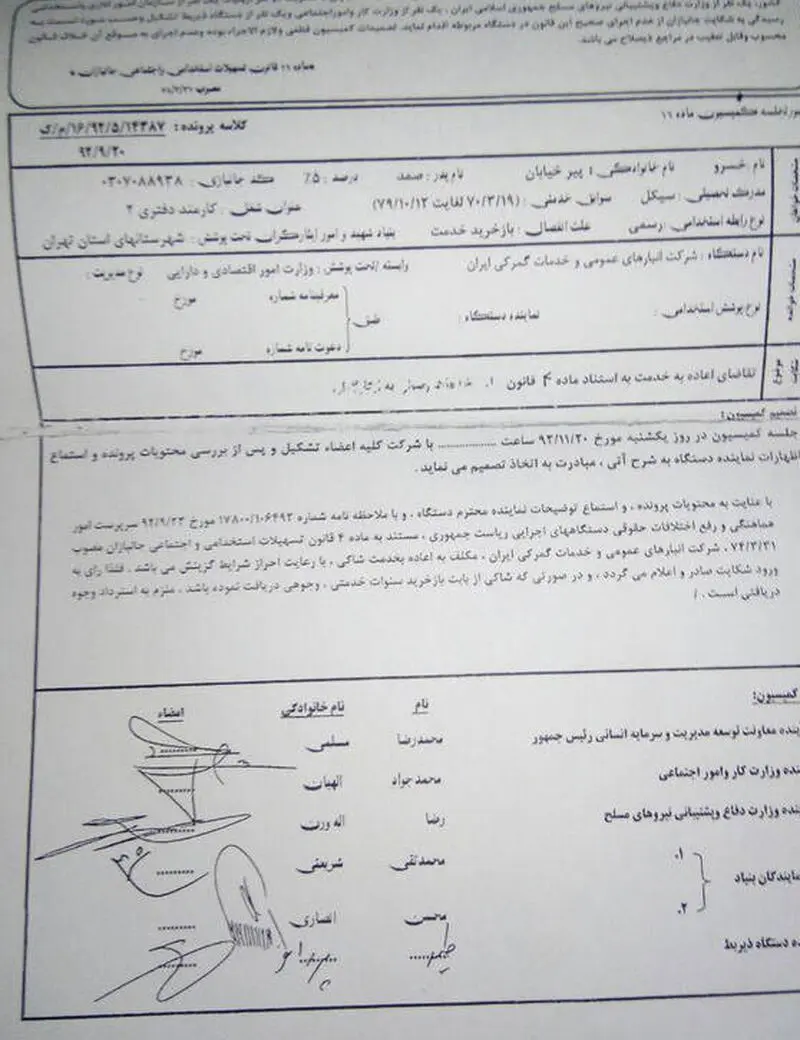 کشور، یک نفر از وزارت دفاع وپشتیبانی نیروهای مسلح جمهوری اسلامی ایران ، یک نفر از وزارت کار وامور اجتماعی ویک نفر از دستگاه ذیربط تشکیل و حسب مورد نسبت به
رسیدگی به شکایت جانبازان از عدم اجرای صحیح این قانون در دستگاه مربوطه اقدام نماید. تصمیمات کمیسیون قطعی ولازم الاجراء بوده وعدم اجرای به موقع آن خلاف قانون
محسوب وقابل تعقیب در مراجع ذیصلاح می باشد.
ماده ۱۱ قانون تسهیلات استخدامی واجتماعی جانبازان
مصوب ۷۴/۳/۳۱
صورتجلسه کمیسیون ماده ۱۱
کلاسه پرونده : ۱۶/۹۲/۵/۱۴۳۸۷/م/ک
۹۲/۹/۲۰
نام : خسرو نام خانوادگی : پیر خیابان نام پدر : صمد درصد : ۵٪ کد جانبازی : ۰۳۰۷۰۸۸۹۳۸
مدرک تحصیلی : سیکل سوابق خدمتی : (۷۰/۳/۱۹ لغایت ۷۹/۱۰/۱۲) عنوان شغل : کارمند دفتری ۲
نوع رابطه استخدامی : رسمی علت انفصال : بازخرید خدمت بنیاد شهید و امور ایثارگران تحت پوشش : شهرستانهای استان تهران
نام دستگاه : شرکت انبارهای عمومی و خدمات گمرکی ایران وابسته /تحت پوشش : وزارت امور اقتصادی و دارایی نوع مدیریت :
نوع پوشش استخدامی : نماینده دستگاه : طبق معرفینامه شماره مورخ
دعوت نامه شماره مورخ
موضوع شکایت
تقاضای اعاده به خدمت به استناد ماده ۴ قانون
تصمیم کمیسیون:
جلسه کمیسیون در روز یکشنبه مورخ ۹۲/۱۱/۲۰ ساعت ................ با شرکت کلیه اعضاء تشکیل و پس از بررسی محتویات پرونده و استماع
اظهارات نماینده دستگاه به شرح آتی ، مبادرت به اتخاذ تصمیم می نماید.
با عنایت به محتویات پرونده ، و استماع توضیحات نماینده محترم دستگاه ، و با ملاحظه نامه شماره ۱۷۸۰۰/۱۰۶۴۹۲ مورخ ۹۲/۹/۲۳ سرپرست امور
هماهنگی و رفع اختلافات حقوقی دستگاههای اجرایی ریاست جمهوری ، مستند به ماده ۴ قانون تسهیلات استخدامی و اجتماعی جانبازان مصوب
۷۴/۳/۳۱ ، شرکت انبارهای عمومی و خدمات گمرکی ایران ، مکلف به اعاده بخدمت شاکی ، با رعایت احراز شرایط گزینش می باشد . فلذا رای به
ورود شکایت صادر و اعلام می گردد ، و در صورتی که شاکی از بابت بازخرید سنوات خدمتی ، وجوهی دریافت نموده باشد ، ملزم به استرداد وجوه
دریافتی است . /
کمیسیون:
نام نام خانوادگی امضاء
ینده معاونت توسعه مدیریت و سرمایه انسانی رئیس جمهور محمدرضا مسلمی ..........
نده وزارت کار وامور اجتماعی محمدجواد الهیان ..........
نده وزارت دفاع وپشتیبانی نیروهای مسلح رضا اله ورن
مایندگان بنیاد
۱. محمدتقی شریعتی ..........
۲. محسن انصاری ..........
ه دستگاه ذیربط